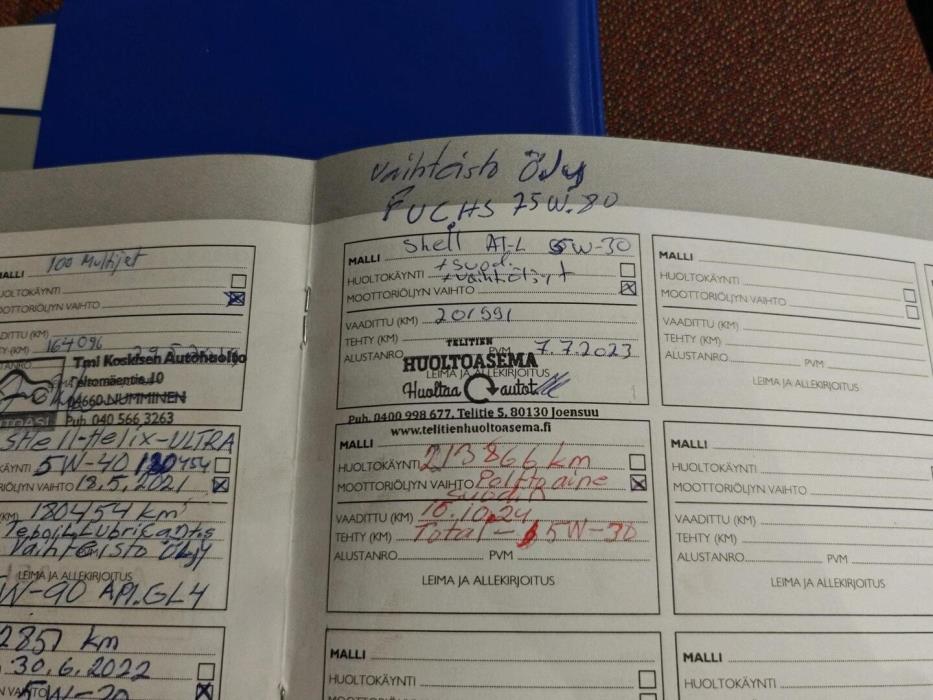 100 Multijet
MALLI
UOLTOKÄYNTI
OOTTORIÖLJYN VAIHTO
DITTU (KM)
Y (KM) 164096
Tmi Koskisen Autohuolto
Teltomäentie 10
04660 NUMMINEN
Puh 040 566 3263
SHell-Helix-ULTRA
KÄYNTI 5W-40 180454
RIÖLJYN VAIHTO 18.5.2021
(KM) 180454 km
Teboil Lubricants
Vaihteisto Öljy
LEIMA JA ALLEKIRJOITUS
W-90 API.GL4
2857 km
30.6.2022
N VAIHTO 5W-30
Vaihteisto Öljy
FUCHS 75W.80
Shell AT-L 5W-30
MALLI
+suod.
HUOLTOKÄYNTI +vaihtöljyt
MOOTTORIÖLJYN VAIHTO
VAADITTU (KM) 201591
TEHTY (KM)
ALUSTANRO PVM 7.7.2023
TELITIEN
HUOLTOASEMA
LEIMA JA ALLEKIRJOITUS
Huoltaa autot.
Puh. 0400 998 677, Telitie 5, 80130 Joensuu
www.telitienhuoltoasema.fi
MALLI
HUOLTOKÄYNTI 213866 km
MOOTTORIÖLJYN VAIHTO Polttoaine
suodin
VAADITTU (KM) 16.10.24
TEHTY (KM) Total- 5W-30
ALUSTANRO PVM
LEIMA JA ALLEKIRJOITUS
MALLI
HUOLTOKÄYNTI
MOOTTORIÖLJYN VAIHTO
MALLI
HUOLTOKÄYNTI
MOOTTORIÖLJYN VAIHTO
VAADITTU (KM)
TEHTY (KM)
ALUSTANRO PVM
LEIMA JA ALLEKIRJOITUS
MALLI
HUOLTOKÄYNTI
MOOTTORIÖLJYN VAIHTO
VAADITTU (KM)
TEHTY (KM)
ALUSTANRO PVM
LEIMA JA ALLEKIRJOITUS
MALLI
HUOLTOKÄYNTI